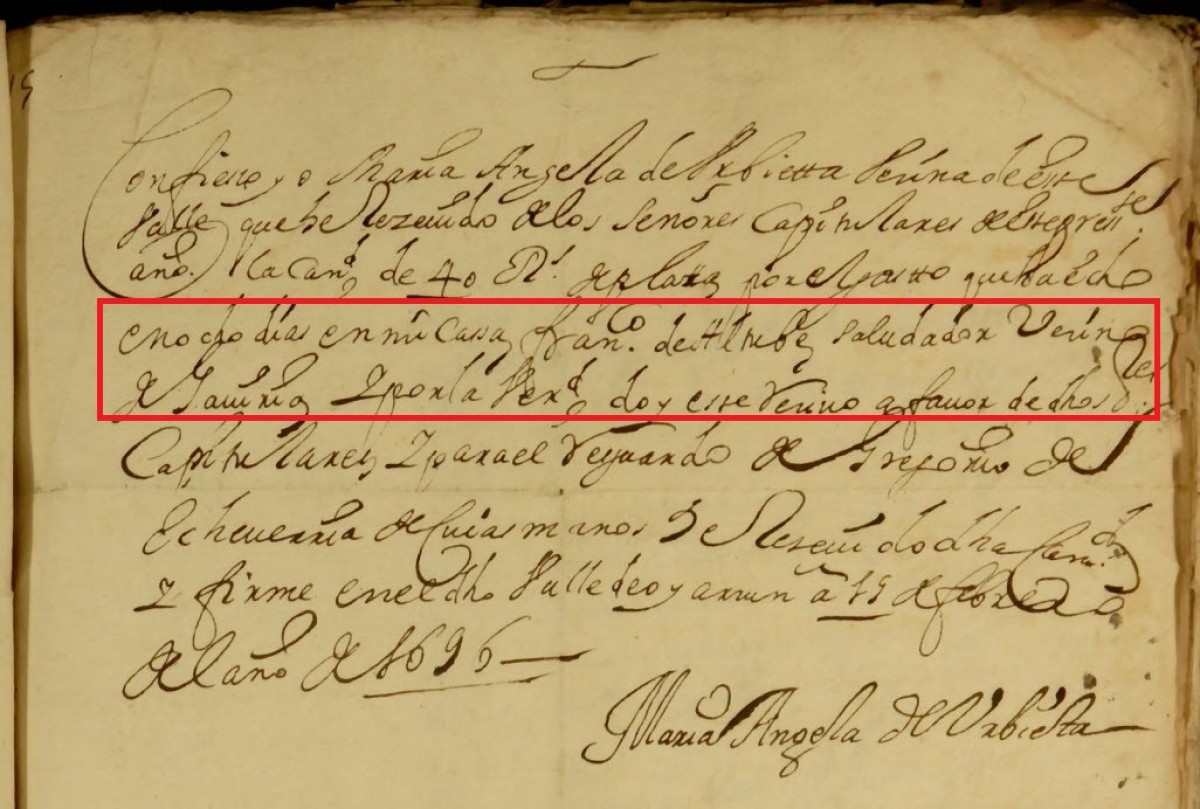 Confiesso yo Maria Angela de Urbietta Veçina de este
Valle que he Rezeuido de los Señores Capitulares de este press.te
año. la Can.d de 40 Rs. de plata por el gasto que ha echo
en ocho dias en mi Cassa, fran.co de Altube saludador Veçino
de Gauiria, Y por la Verd.d doy este Reciuo a fauor de dhos S.res
Capitulares, Y para el Resguardo de Gregorio de
Echeuerria de Cuias manos he Rezeuido dha Can.d
Y firme en el dho Valle de oyarçun â 15 de febrero
de el año de 1696
Maria Angela de Urbieta